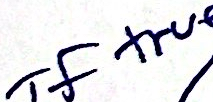 If true